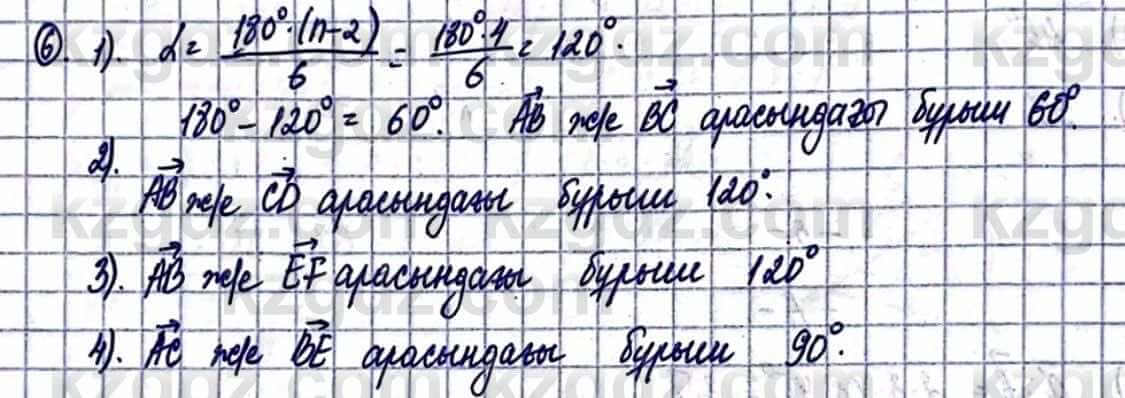 6. 1). α = 180°·(n-2)/6 = 180°·4/6 = 120°.
180° - 120° = 60°. AB ж/е BC арасындағы бұрыш 60°.
2).
AB ж/е CD арасындағы бұрыш 120°.
3). AB ж/е EF арасындағы бұрыш 120°
4). AC ж/е BE арасындағы бұрыш 90°.